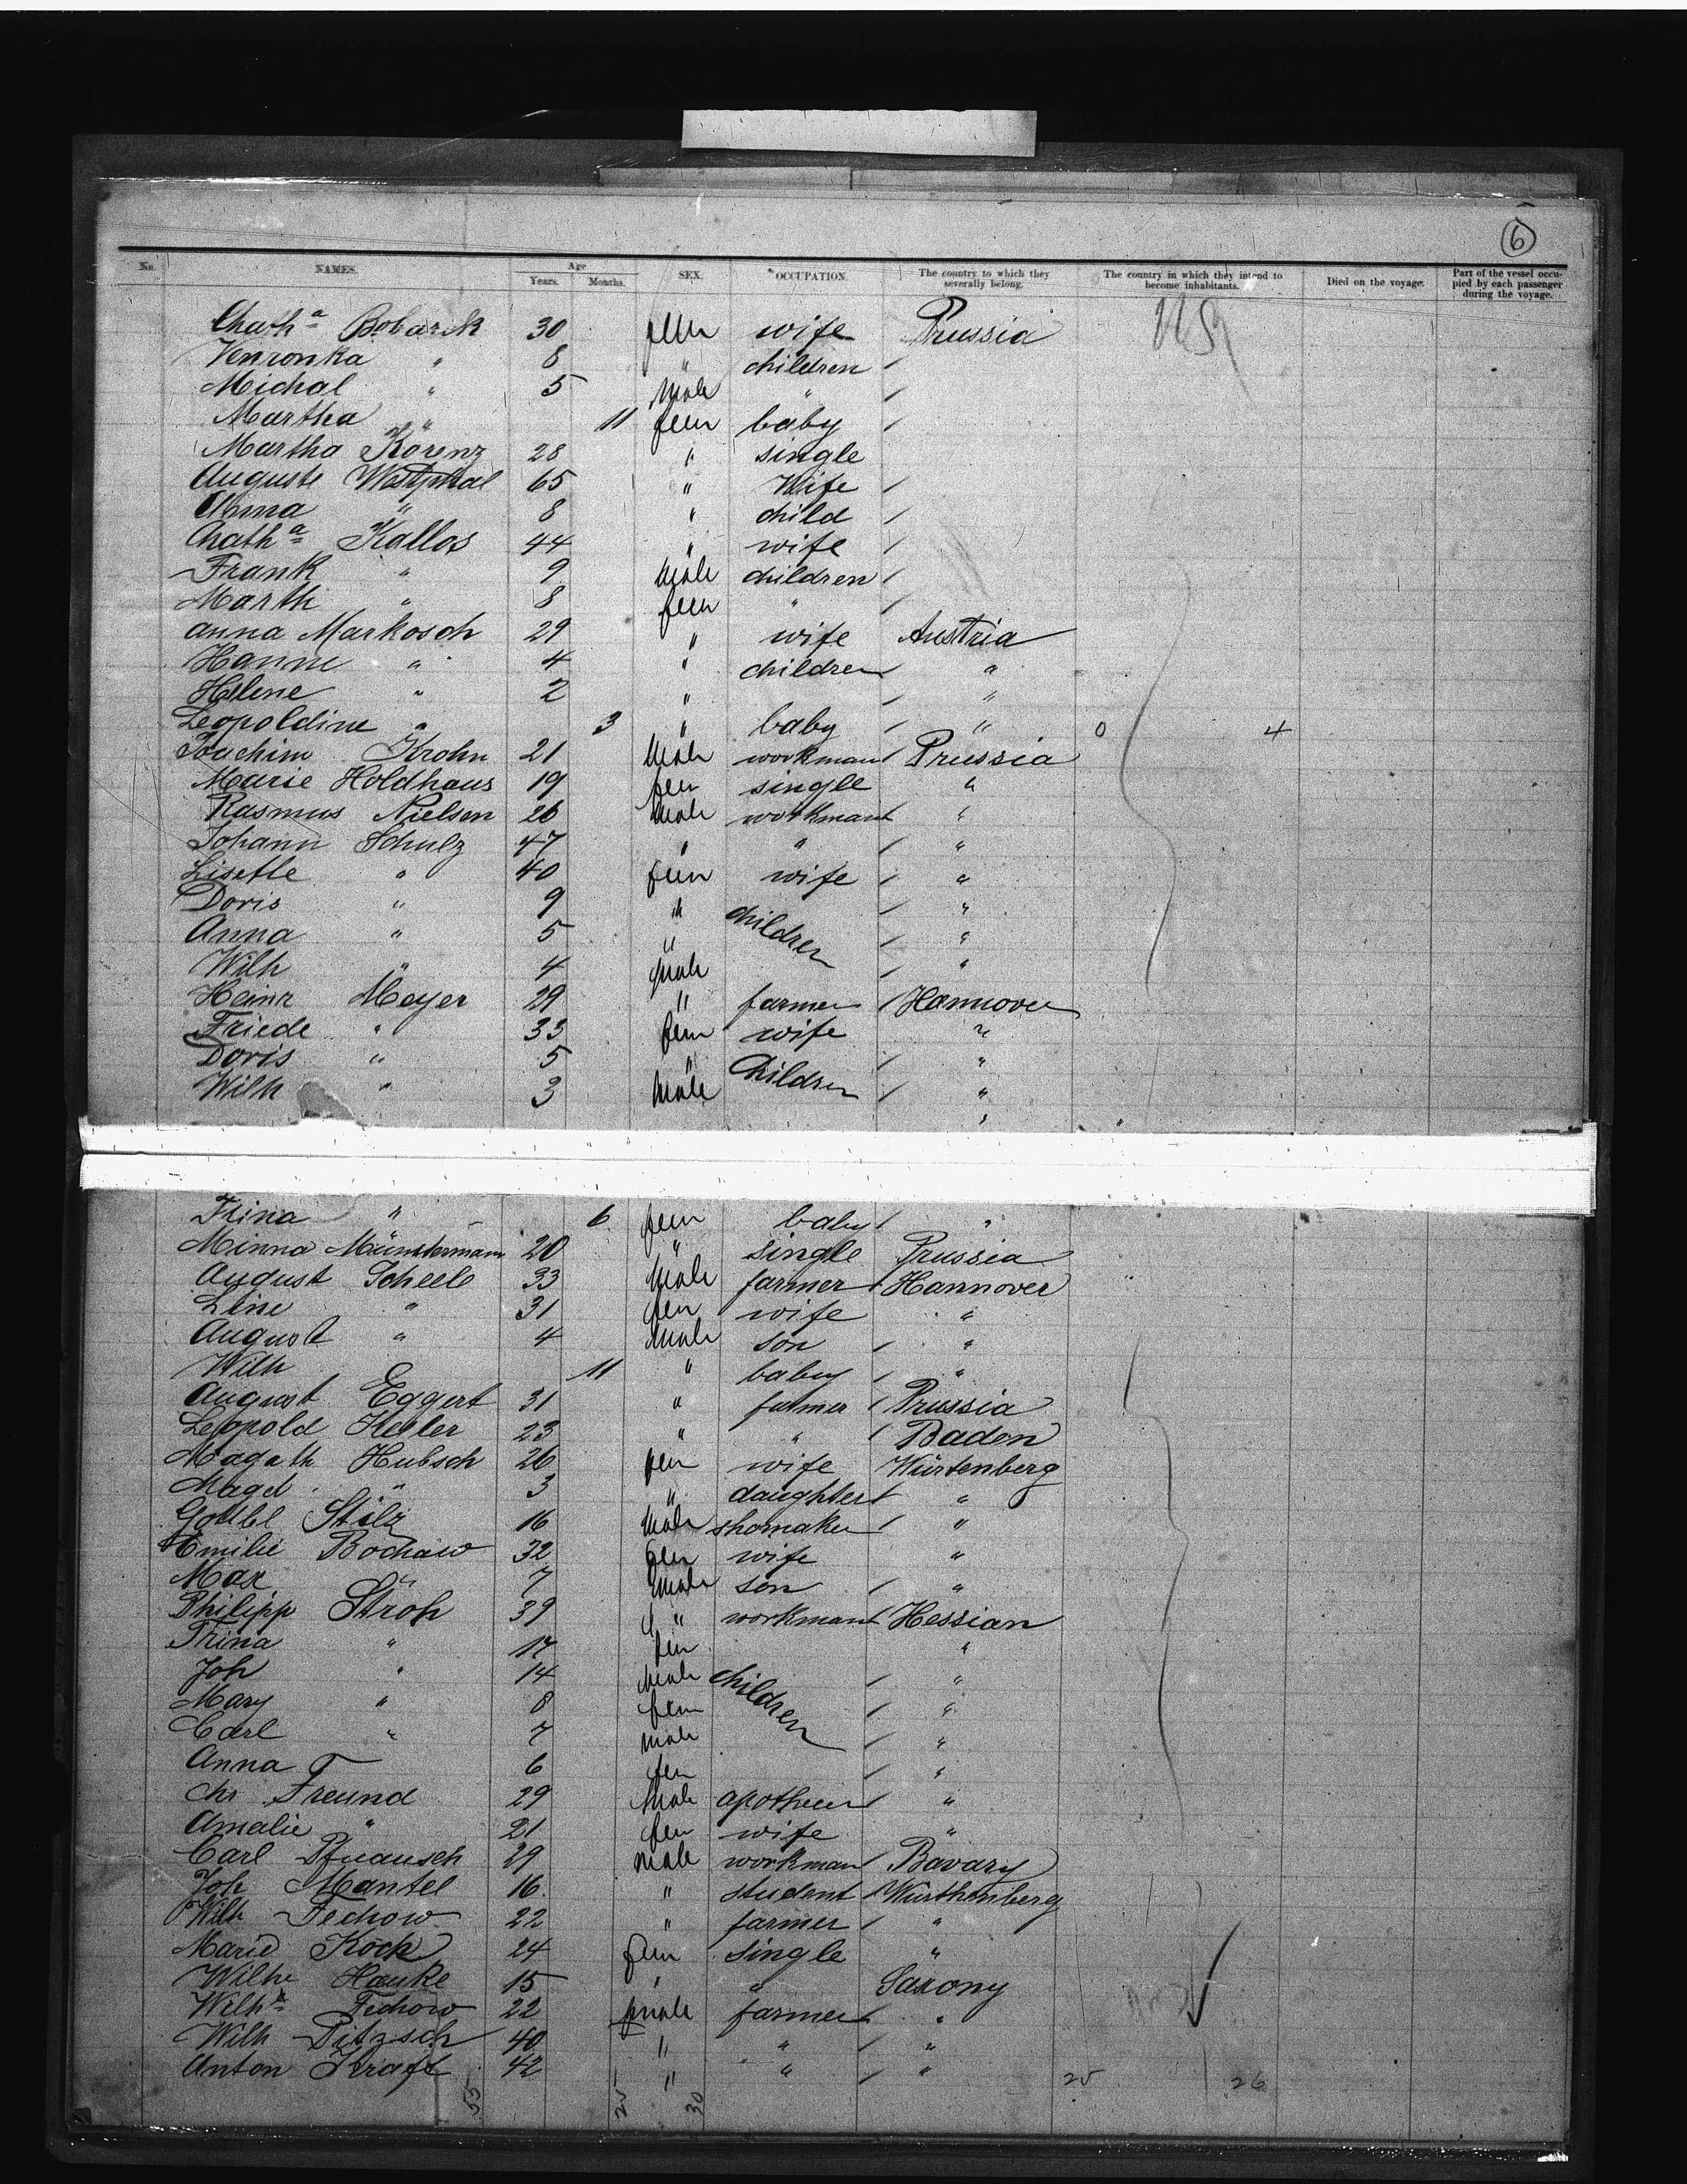 6
No. NAMES. Age Years. Months. SEX. OCCUPATION. The country to which they severally belong. The country in which they intend to become inhabitants. Died on the voyage. Part of the vessel occupied by each passenger during the voyage.
Chath a Bobarzik 30 fem wife Prussia
Venronka " 8 " children /
Michal " 5 Male " /
Martha " 11 fem baby /
Martha Korenz 28 " single
Auguste Westphal 65 " Wife /
Anna " 8 " child /
Chath a Kallos 44 " wife /
Frank " 9 Male children /
Marth " 8 fem " /
Anna Markosch 29 " wife Austria
Hanne " 4 " children "
Helene " 2 " / "
Leopoldine " 3 " baby / " 0 4
Joachim Krohn 21 Male workman / Prussia
Marie Holdhaus 19 fem single "
Rasmus Nielsen 26 Male workman / "
Johann Schulz 47 " " / "
Lisette " 40 fem wife / "
Doris " 9 " children / "
Anna " 5 " / "
Wilh " 4 Male / "
Heinr Meyer 29 " farmer / Hannover
Friede " 33 fem wife "
Doris " 5 " Children / "
Wilh " 3 Male / "
Trina " 6 fem baby / "
Minna Münstermann 20 " single Prussia
August Scheele 33 Male farmer / Hannover
Line " 31 fem wife "
August " 4 Male son / "
Wilh 11 " baby / "
August Eggert 31 " farmer / Prussia
Leopold Keller 23 " " / Baden
Magath Hubsch 26 fem wife Würtenberg
Magd. " 3 " daughter / "
Gottbl Stilz 16 Male shomaker / "
Emilie Bochaw 32 fem wife "
Max " 7 Male son / "
Philipp Stroh 39 " workman / Hessian
Trina " 17 fem "
Joh " 14 Male children / "
Mary " 8 fem / "
Carl " 7 Male / "
Anna 6 fem / "
Chr Freund 29 Male / "
Amalie " 21 fem wife "
Carl 29 male workman / Bavary
Joh Mantel 16 " student / Würthenberg
Wilh Techow 22 " farmer / "
Marie Kock 24 fem single "
Wilhe Hauke 15 " " Saxony
Wilh Techow 22 male farmer / "
Wilh Pitzsch 40 " " / "
Anton Kraft 42 " " / " 25 26
55 25 30